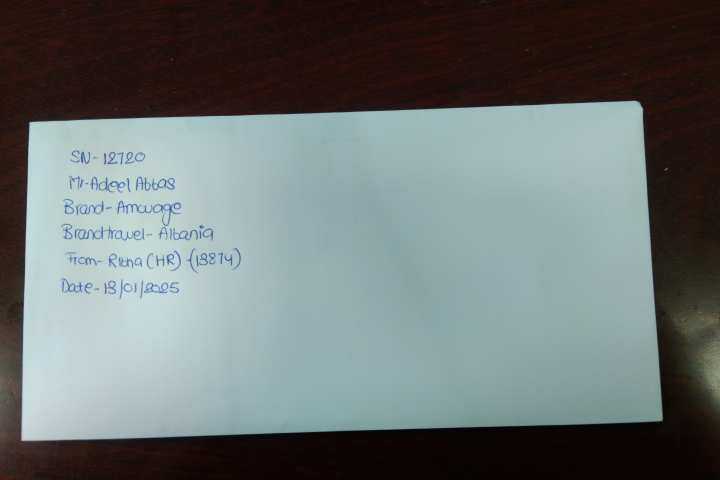 SN- 12720
Mr-Adeel Abbas
Brand- Amouage
Brandtravel- Albania
From- (HR) (13874)
Date- 13/01/2025